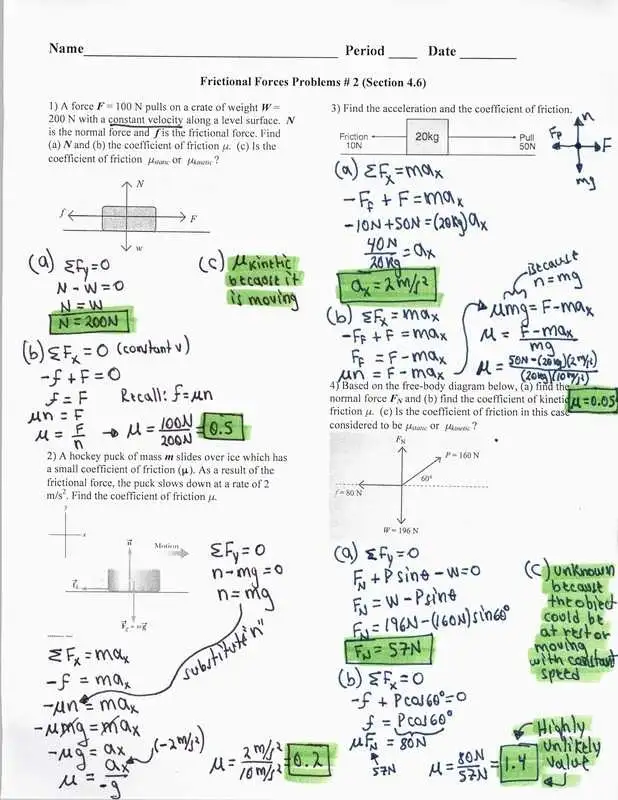 Name
Period
Date
Frictional Forces Problems # 2 (Section 4.6)
1) A force F = 100 N pulls on a crate of weight W =
200 N with a constant velocity along a level surface. N
is the normal force and f is the frictional force. Find
(a) N and (b) the coefficient of friction μ. (c) Is the
coefficient of friction μstatic or μkinetic?
N
f
F
W
(a) ΣFy=0
N - W = 0
N = W
N = 200N
(c) μkinetic
because it
is moving
(b) ΣFx = 0 (constant v)
-f + F = 0
f = F Recall: f = μn
μn = F
μ = F/n → μ = 100N/200N = 0.5
2) A hockey puck of mass m slides over ice which has
a small coefficient of friction (μ). As a result of the
frictional force, the puck slows down at a rate of 2
m/s². Find the coefficient of friction μ.
y
x
n
Motion
Fg = mg
ΣFy = 0
n - mg = 0
n = mg
substitute "n"
ΣFx = max
-f = max
-μn = max
-μmg = max
-μg = ax
(-2m/s²)
μ = ax/-g
μ = 2m/s²/10m/s² = 0.2
3) Find the acceleration and the coefficient of friction.
Friction
10N
20kg
Pull
50N
n
Ff
F
mg
(a) ΣFx = max
-Ff + F = max
-10N + 50N = (20kg)ax
40N/20kg = ax
ax = 2m/s²
Because
n = mg
(b) ΣFx = max
-Ff + F = max
Ff = F - max
μn = F - max
μmg = F - max
μ = F - max/mg
μ = 50N - (20kg)(2m/s²)/(20kg)(10m/s²)
μ = 0.05
4) Based on the free-body diagram below, (a) find the
normal force FN and (b) find the coefficient of kinetic
friction μ. (c) Is the coefficient of friction in this case
considered to be μstatic or μkinetic?
FN
P = 160 N
60°
f = 80 N
W = 196 N
(a) ΣFy = 0
FN + Psinθ - W = 0
FN = W - Psinθ
FN = 196N - (160N)sin60°
FN = 57N
(c) unknown
because
the object
could be
at rest or
moving
with constant
speed
(b) ΣFx = 0
-f + Pcos60° = 0
f = Pcos60°
μFN = 80N
57N
μ = 80N/57N = 1.4
Highly
unlikely
value